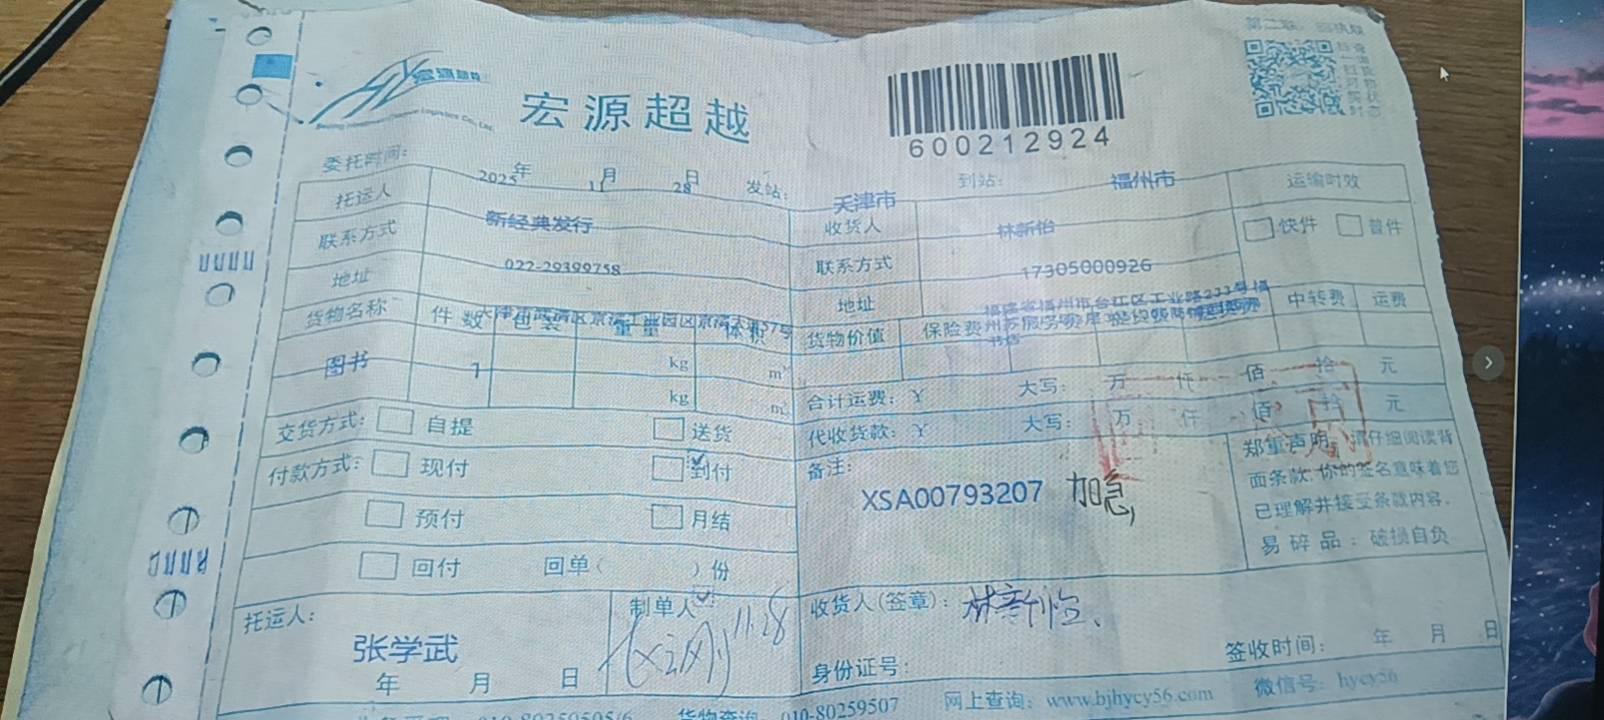 宏源超越
600212924
委托时间: 2025年 11月 28日 发站: 天津市 到站: 福州市 运输时效
托运人 新经典发行 收货人 林新怡 快件 普件
联系方式 022-29399758 联系方式 17305000926
地址 地址 福建省福州市台江区工业路233号福
货物名称 件数 包装 重量 体积 货物价值 保险费 中转费 运费
图书 1 kg m³
kg m³ 合计运费: ¥ 大写: 万 仟 佰 拾 元
交货方式: 自提 送货 代收货款: ¥ 大写: 万 仟 佰 拾 元
付款方式: 现付 到付 备注:
XSA00793207 加急
预付 月结
回付 回单( )份
郑重声明:请仔细阅读背
面条款,你的签名意味着您
已理解并接受条款内容。
易碎品:破损自负
托运人: 制单人 收货人(签章): 林新怡
张学武 11.28
年 月 日 身份证号: 签收时间: 年 月 日
010-80259507 网上查询: www.bjhycy56.com 微信号: hycy56